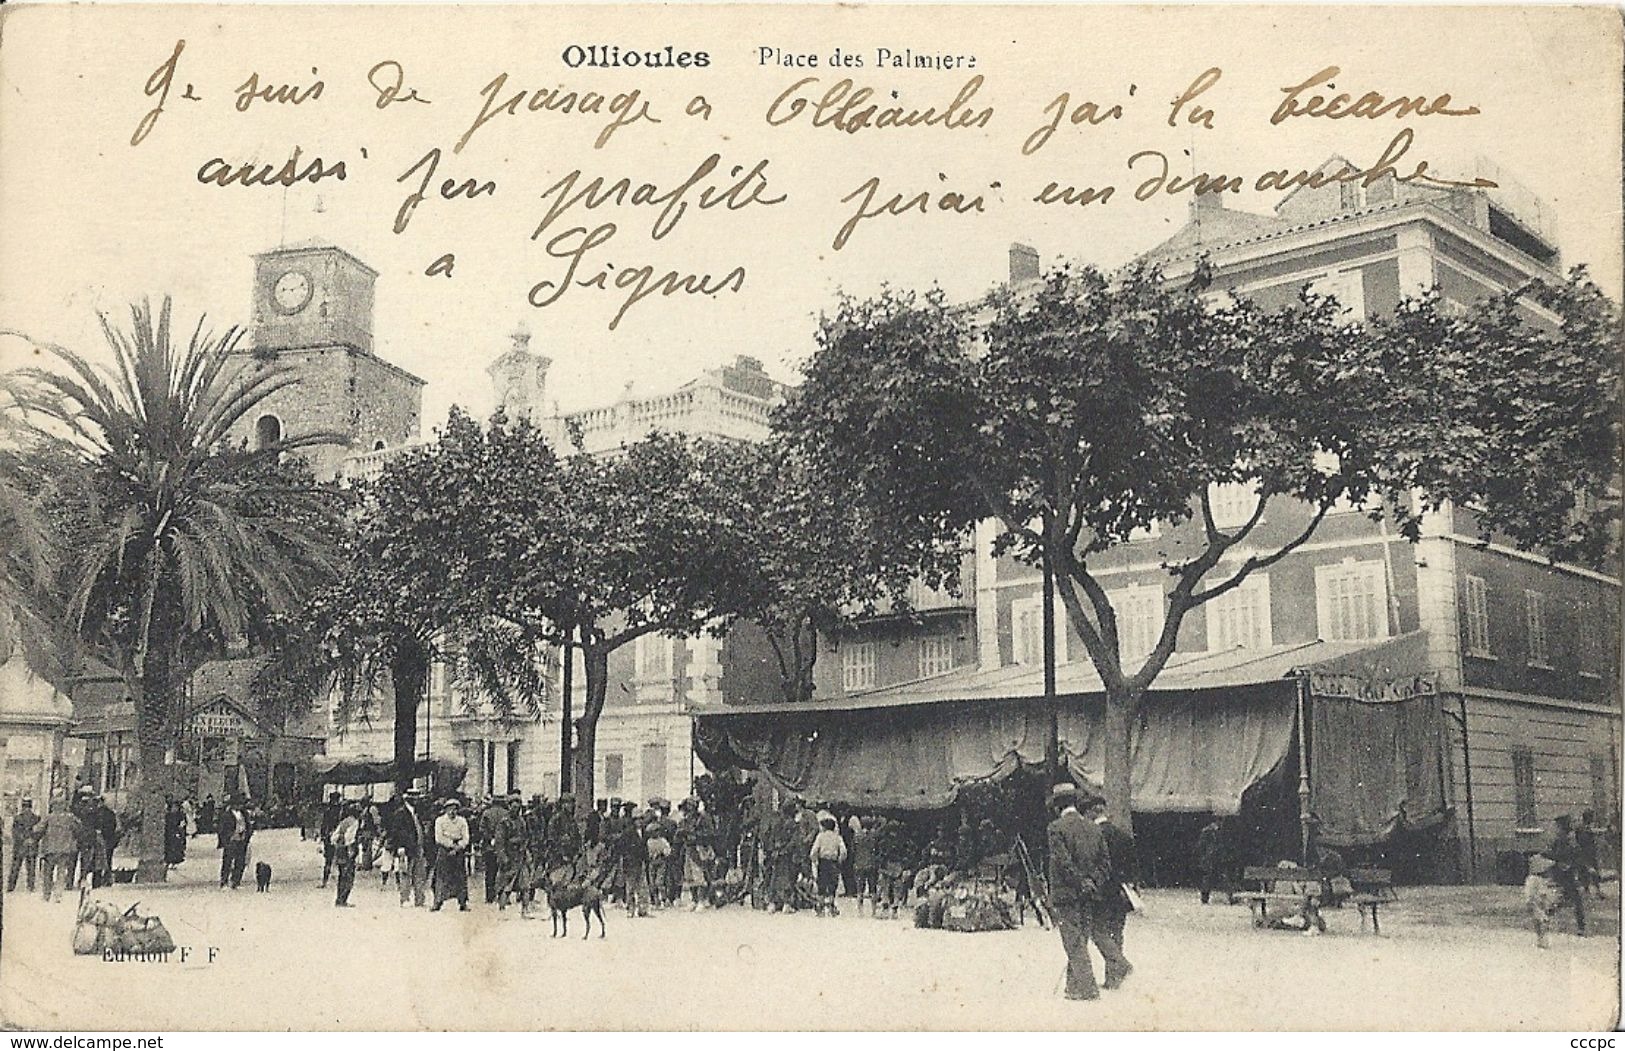 Ollioules Place des Palmiers
Je suis de pasage a Ollioules j'ai la bécane
aussi j'en profite j'irai en dimanche
a Signes
Edition F F
www.delcampe.com
cccpc